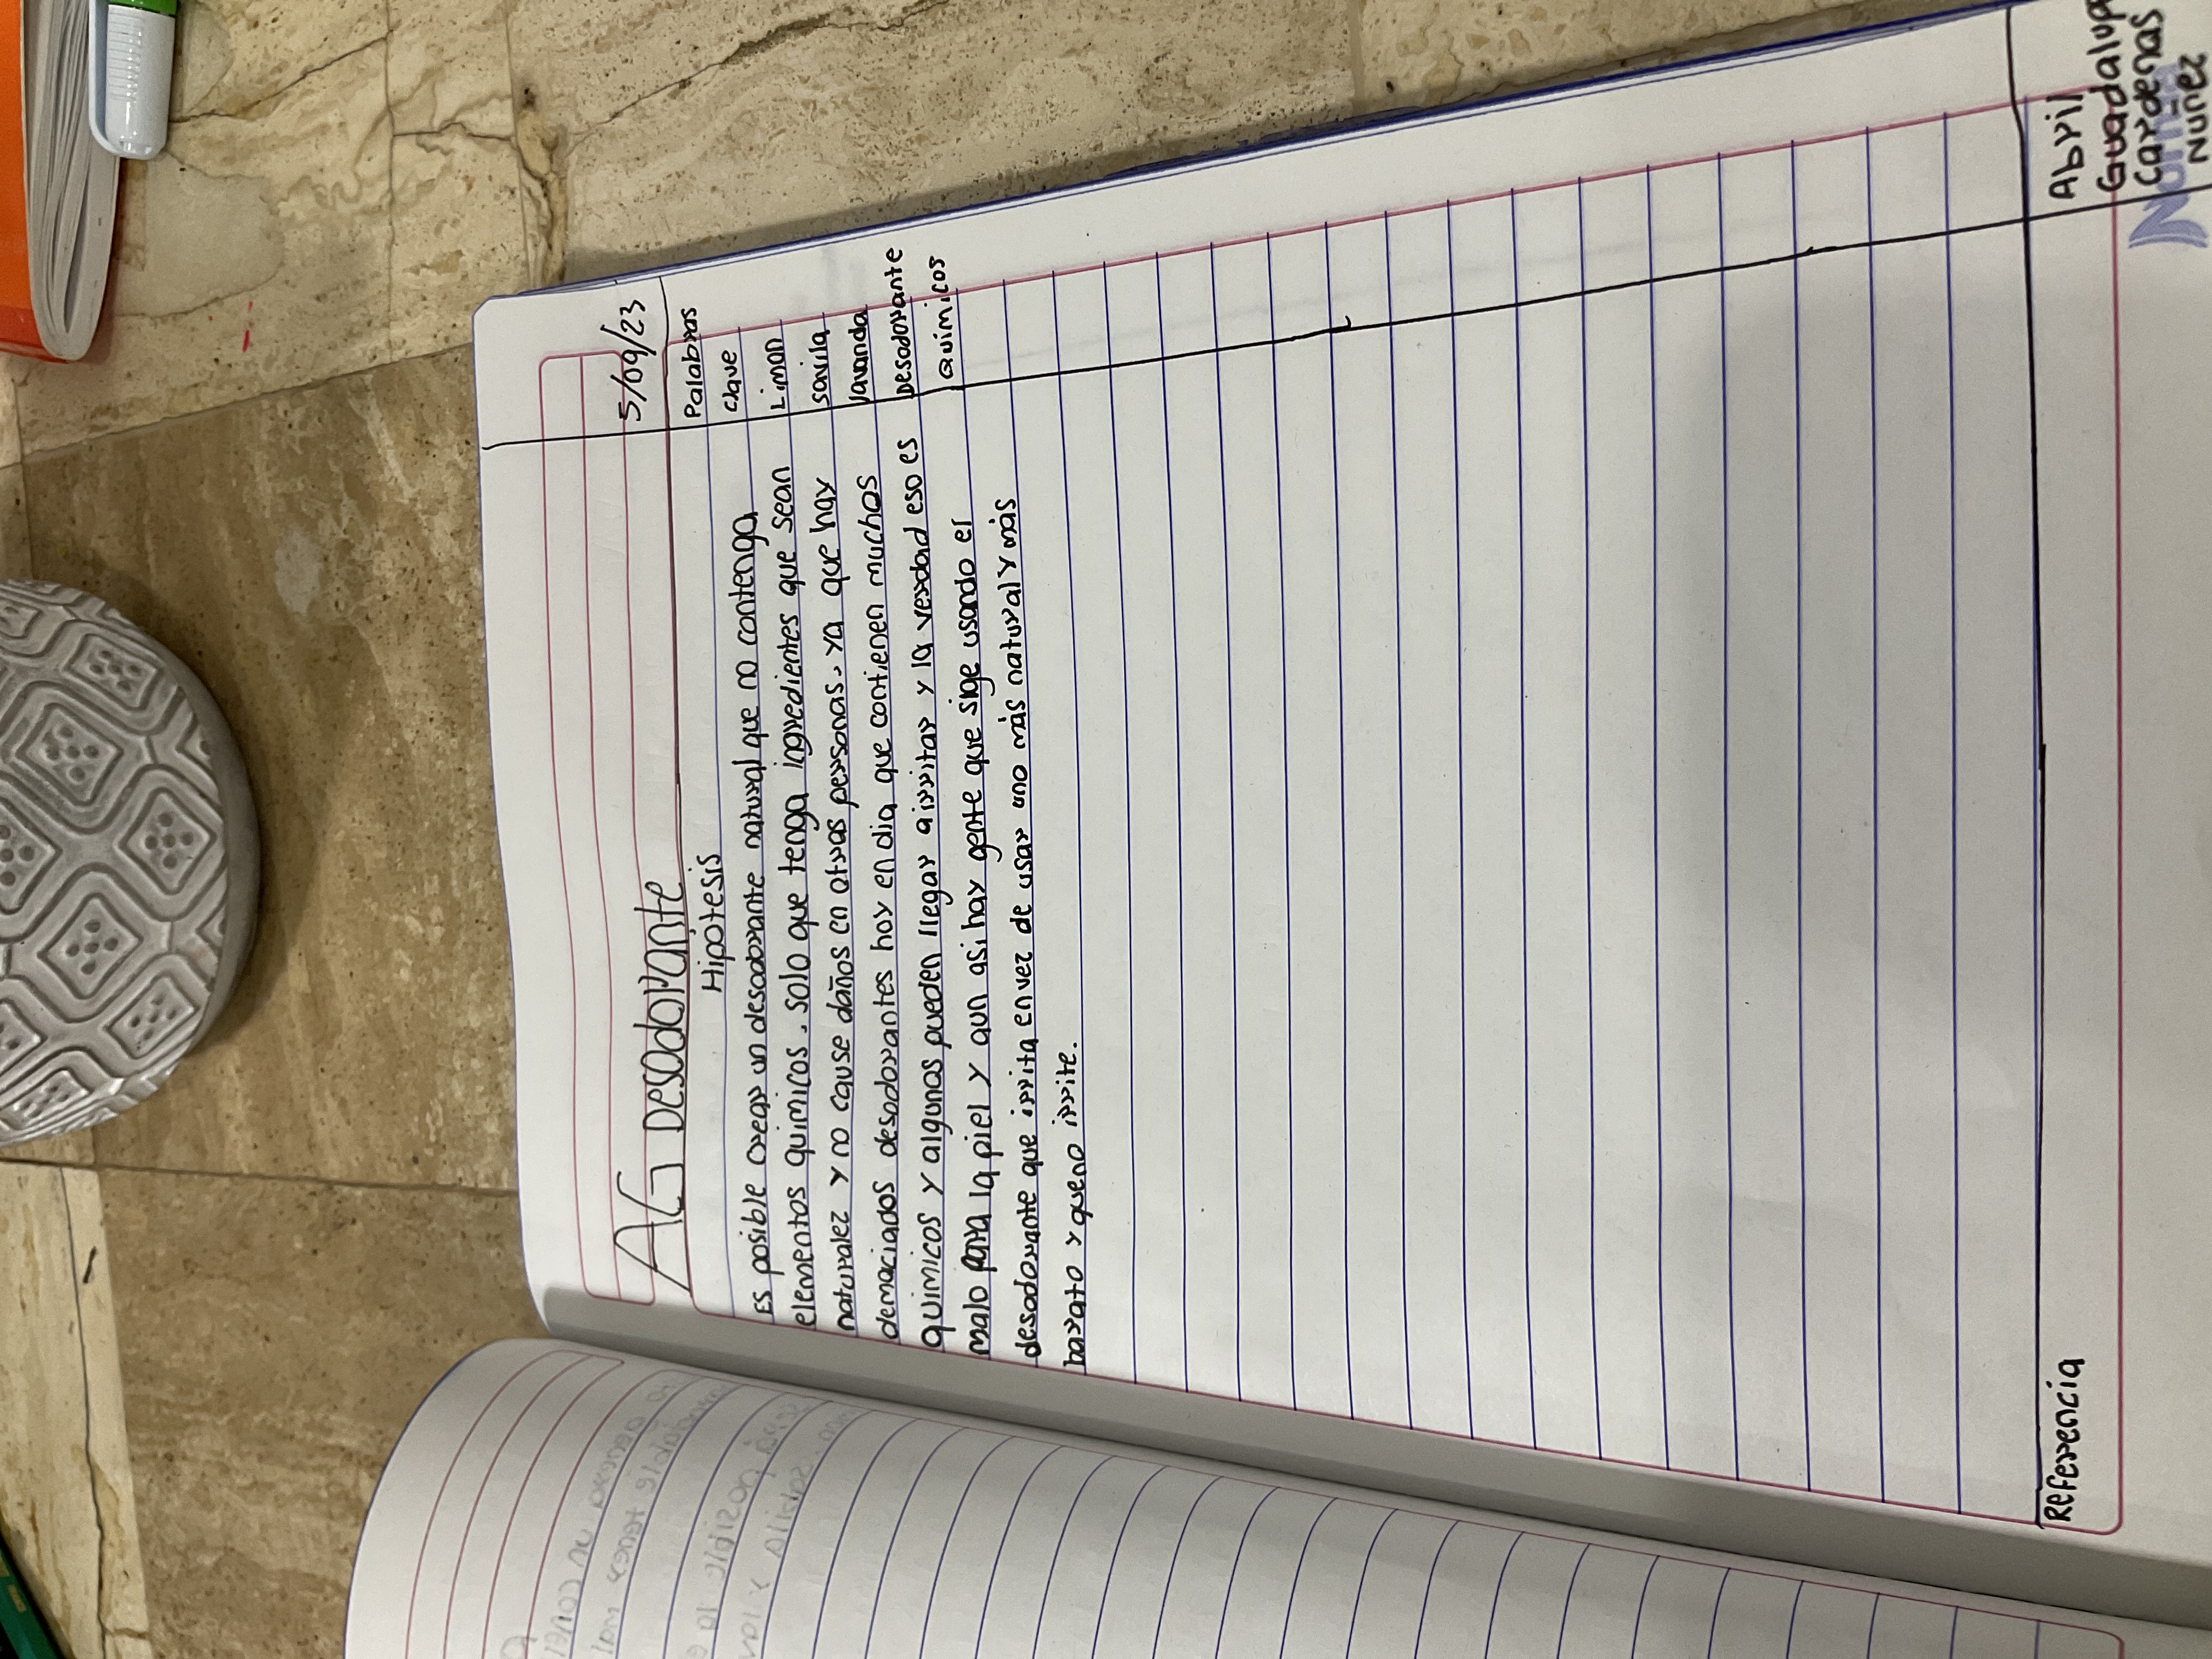 5/09/23
AG Desodorante
Hipotesis
Es posible crear un desodorante natural que no contenga
elementos quimicos, solo que tenga ingredientes que sean
naturalez y no cause daños en otras personas, ya que hay
demaciados desodorantes hoy en dia que contienen muchos
quimicos y algunos pueden llegar a irritar y la verdad eso es
malo para la piel y aun asi hay gente que sige usando el
desodorante que irrita en vez de usar uno más natural y más
barato y que no irrite.
Palabras
clave
Limon
savila
lavanda
Desodorante
Quimicos
Referencia
Abril
Guadalupe
Cardenas
Nuñez
Norma